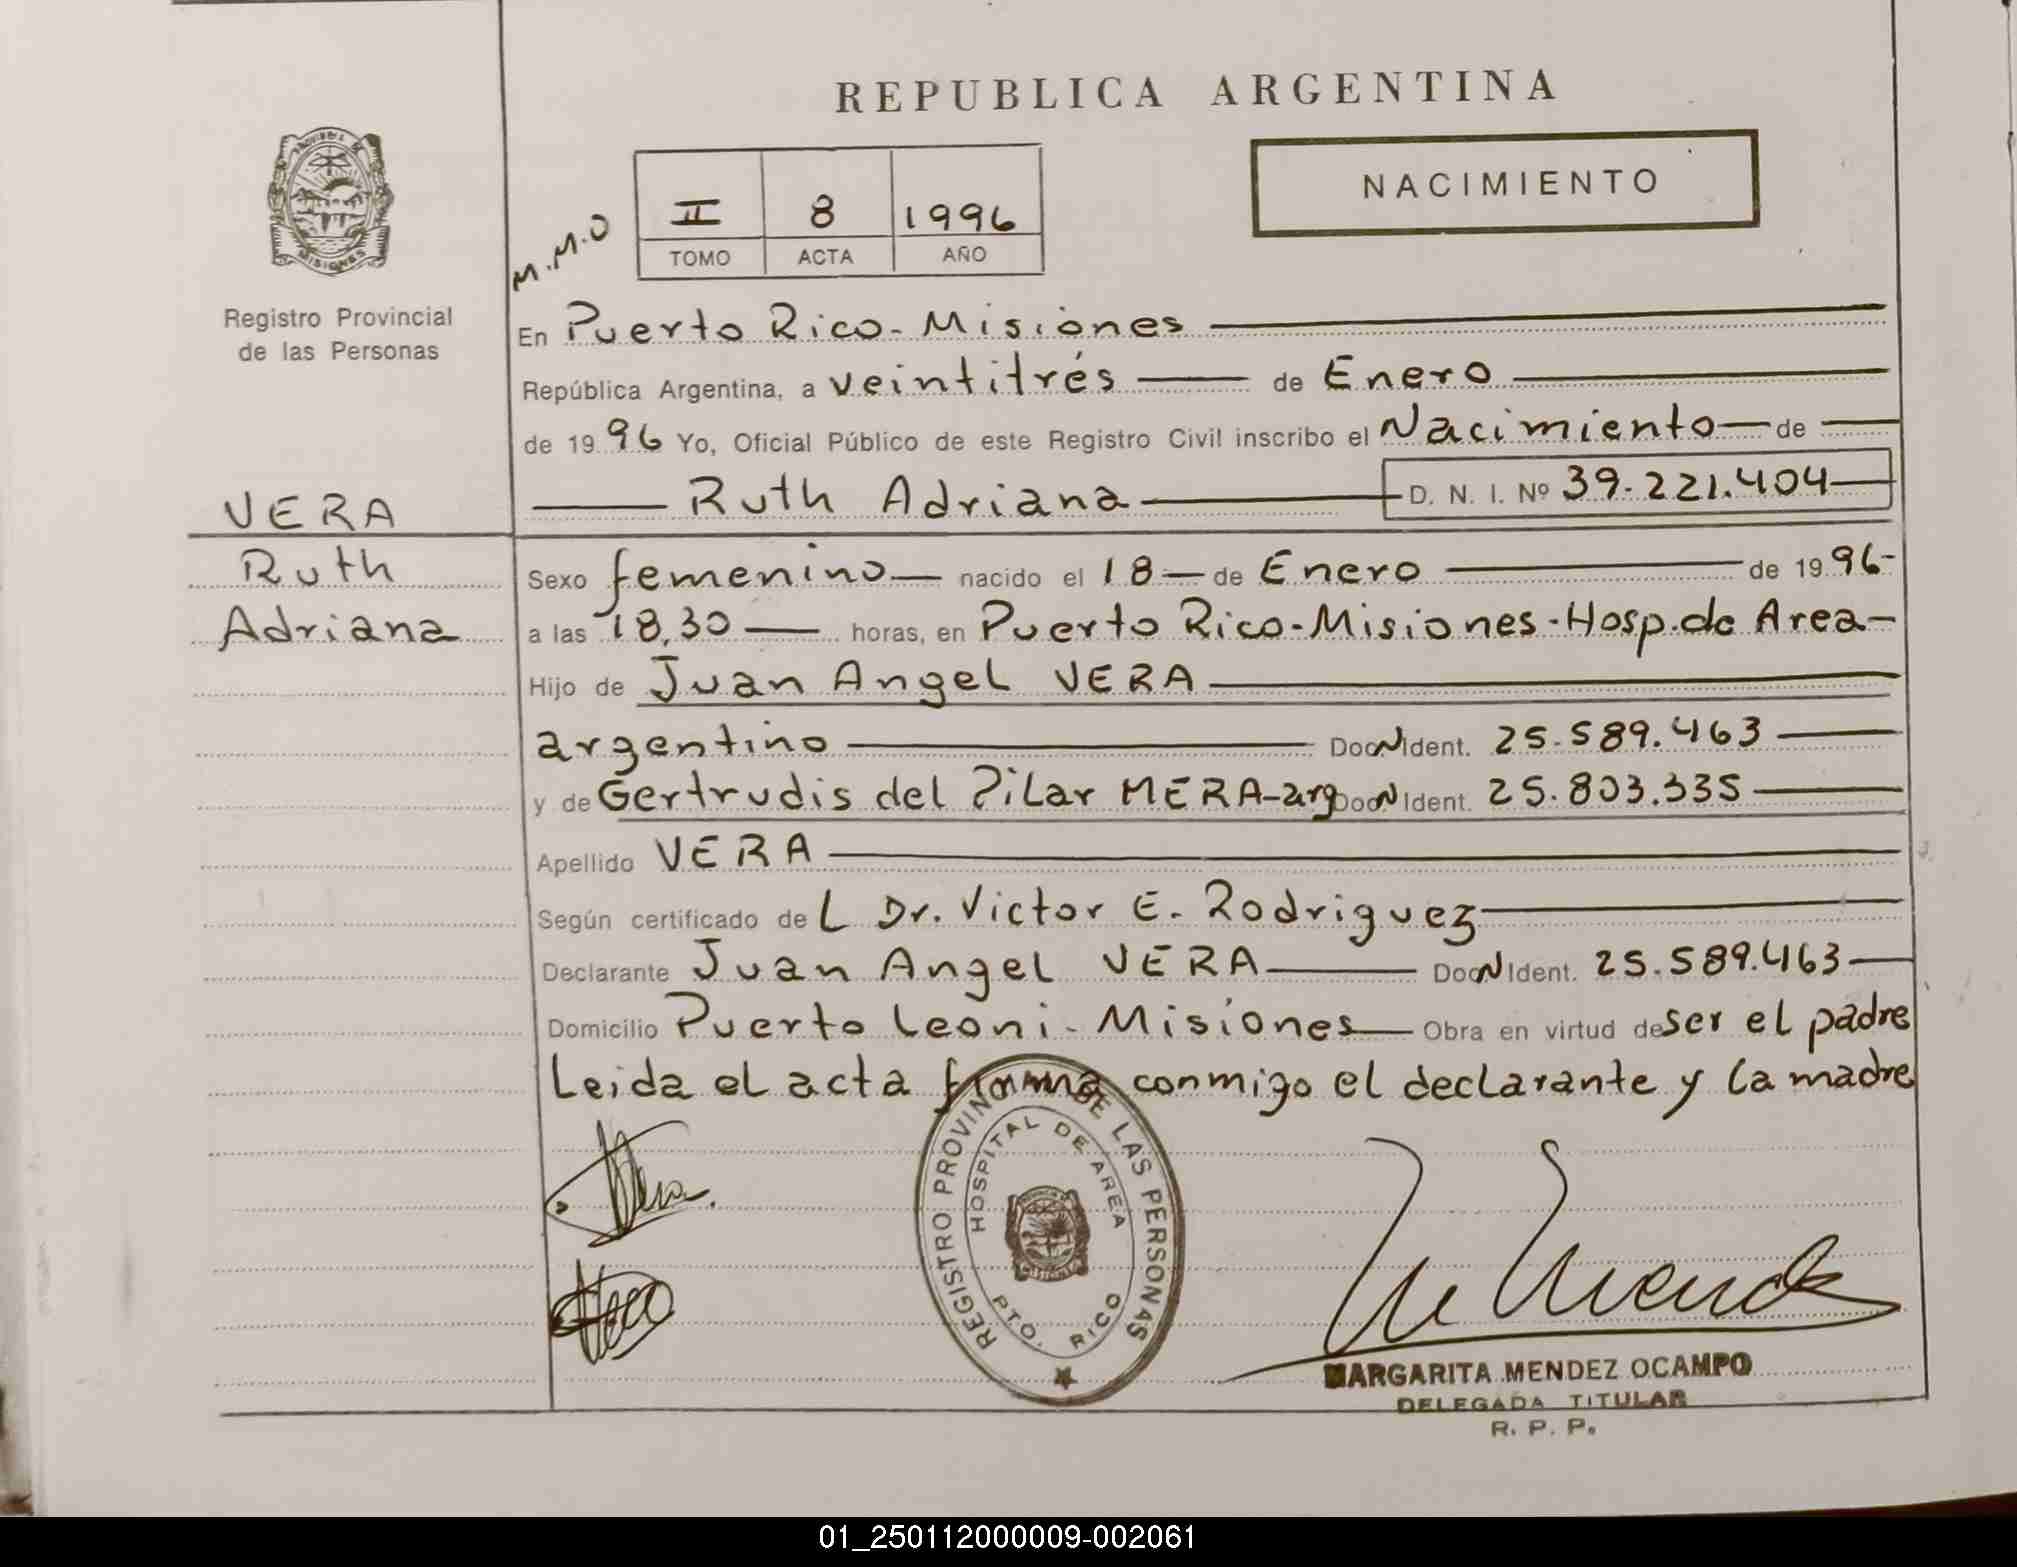 REPUBLICA ARGENTINA
PROVINCIA DE
MISIONES
Registro Provincial
de las Personas
M.M.O
II 8 1996
TOMO ACTA AÑO
NACIMIENTO
En Puerto Rico - Misiones
República Argentina, a veintitrés de Enero
de 1996 Yo, Oficial Público de este Registro Civil inscribo el Nacimiento de
Ruth Adriana D. N. I. Nº 39.221.404
VERA
Ruth
Adriana
Sexo femenino nacido el 18 de Enero de 1996
a las 18,30 horas, en Puerto Rico-Misiones-Hosp.de Area
Hijo de Juan Angel VERA
argentino Doc N Ident. 25.589.463
y de Gertrudis del Pilar MERA-arg Doc N Ident. 25.803.335
Apellido VERA
Según certificado de L Dr. Victor E. Rodriguez
Declarante Juan Angel VERA Doc N Ident. 25.589.463
Domicilio Puerto Leoni - Misiones Obra en virtud de ser el padre
Leida el acta firma conmigo el declarante y la madre
REGISTRO PROVINCIAL DE LAS PERSONAS
HOSPITAL DE AREA
PTO. RICO
MARGARITA MENDEZ OCAMPO
DELEGADA TITULAR
R. P. P.
01_250112000009-002061